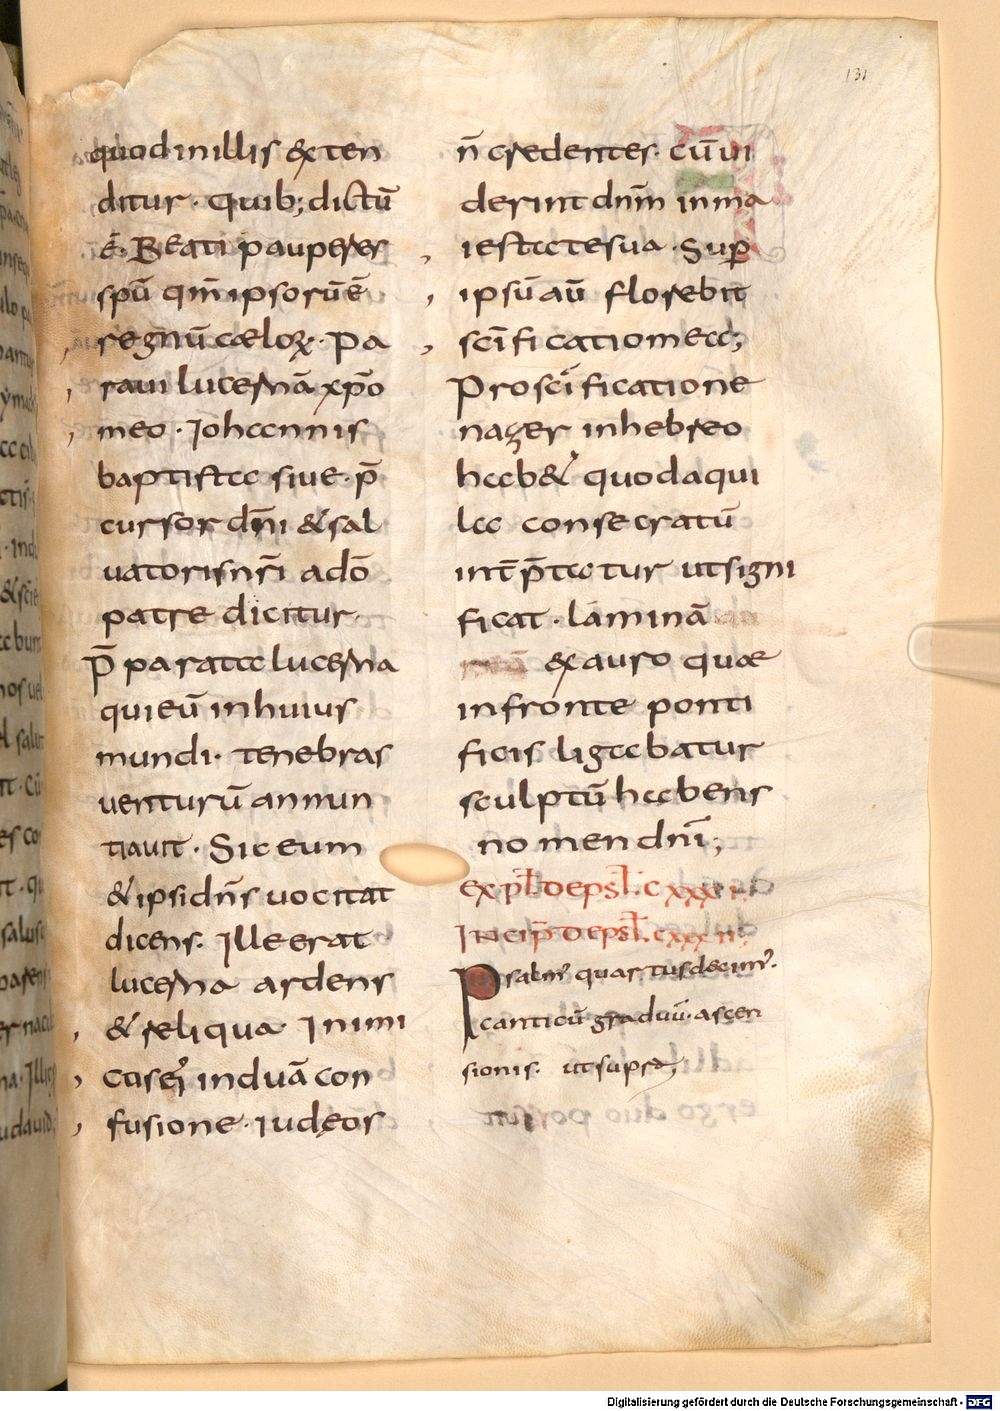 131
quod in illis exten
ditur · Quib; dictū
ē · Beati pauperes
spū qm̄ ipsorū ē
regnū cæloꝝ · Pa
raui lucernā xp̄o
meo · Iohannis
baptistæ siue · p̄
cursor dn̄i & sal
uatoris nr̄i a dō
patre dicitur ·
p̄parata lucerna
qui eū in huius
mundi · tenebras
uenturū annun
tiauit · Sic eum
& ipsi dn̄s uocitat
dicens · Ille erat
lucerna ardens
& reliqua · Inimi
cus eiꝰ induā con
fusione · iudęos
n̄ credentes · cū ui
derint dnm̄ in ma
iestate sua · Suꝑ
ipsū aū florebit
scīficatio mea;
Pro scīficatione
nazer in hebreo
hab& quod aqui
la consecratū
int̄p̄tatur ut signi
ficat · laminā
ex auro quæ
in fronte ponti
ficis ligabatur
sculptū habens
nomen dn̄i;
expl̄ de psl̄ · cxxxi
Incip̄ de psl̄ · cxxxii
Psalmꝰ quartus decimꝰ ·
canticū graduū · ascen
sionis · ut supra;
Digitalisierung gefördert durch die Deutsche Forschungsgemeinschaft - DFG